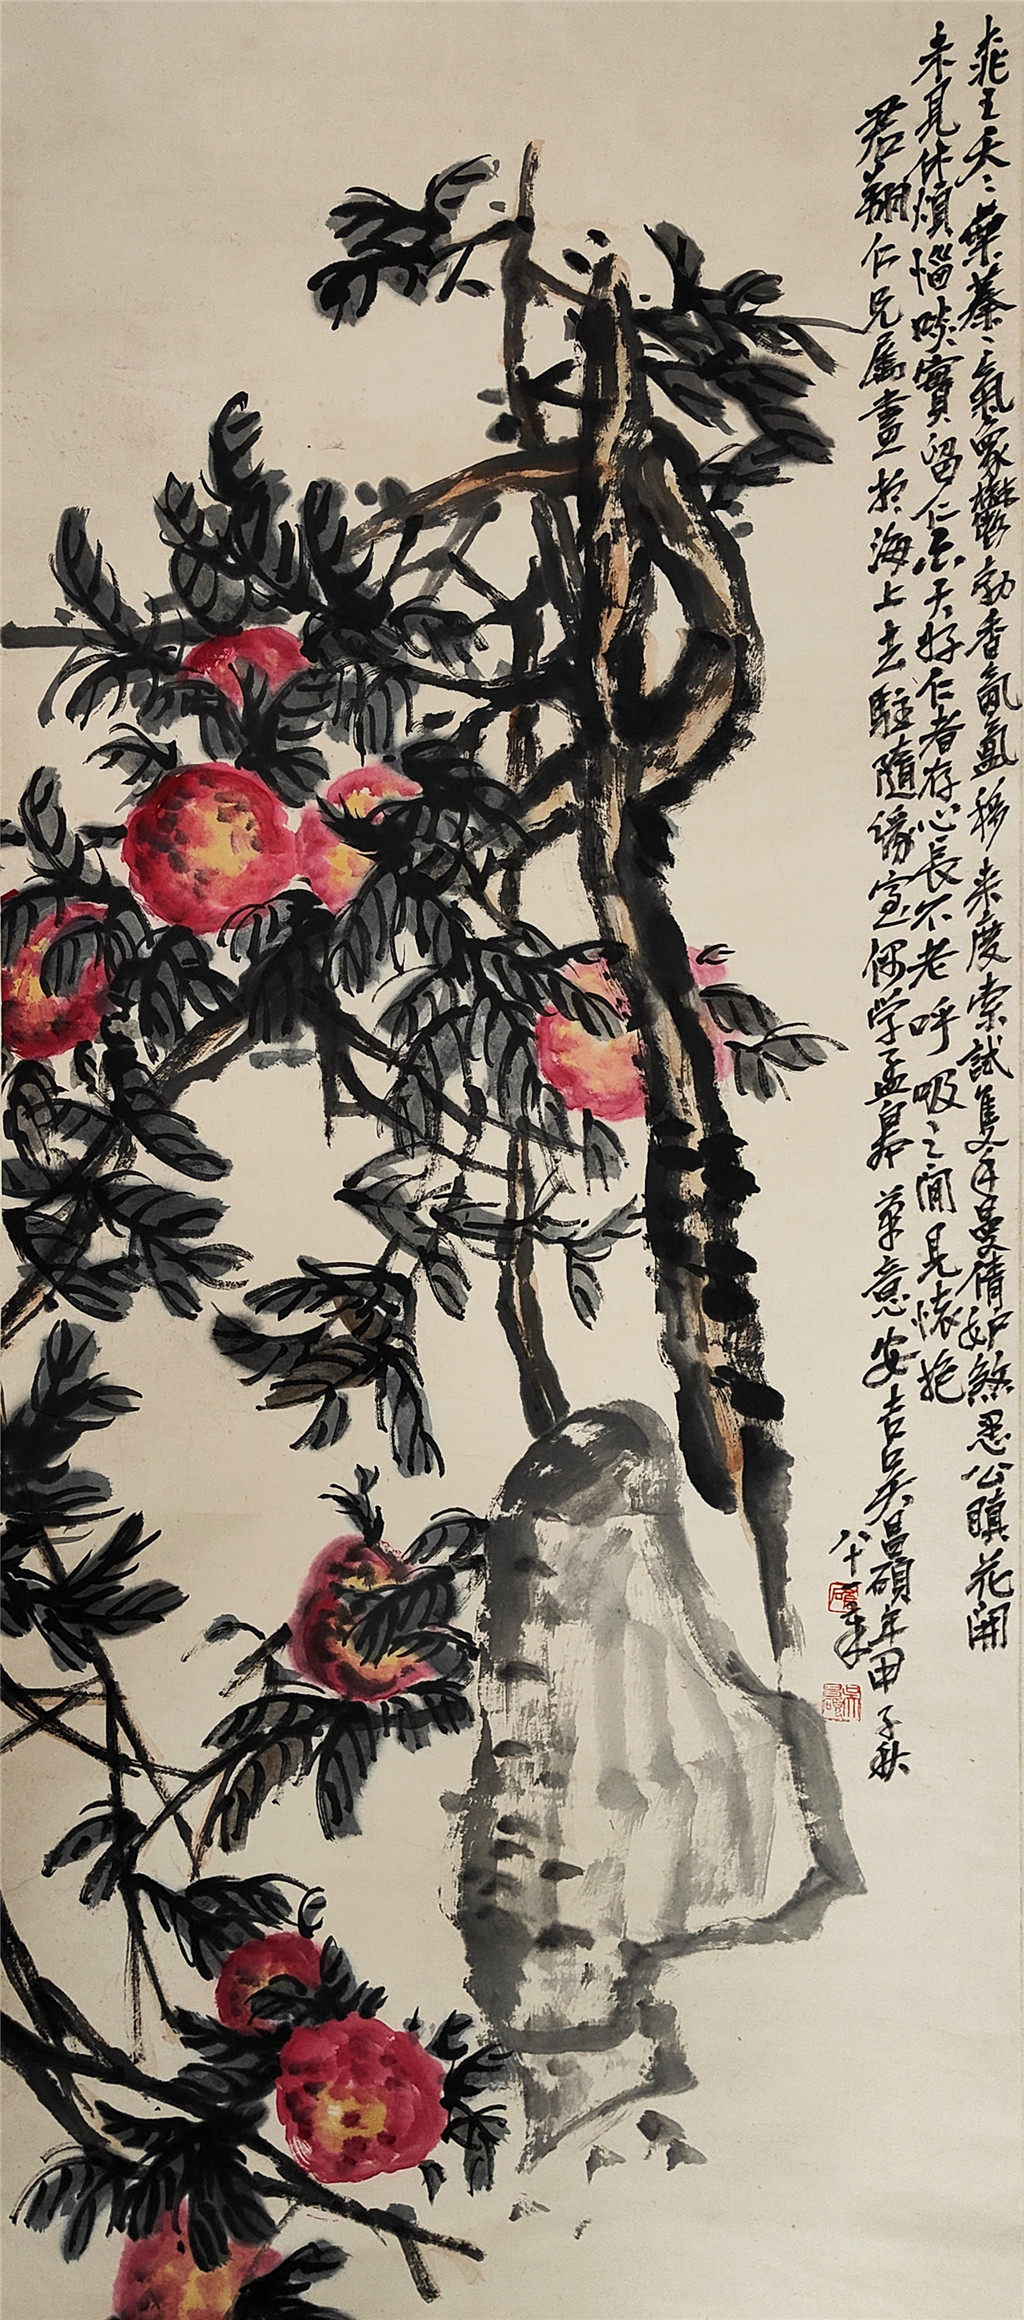 桃之夭夭葉蓁蓁氣象鬱勃香氤氳移來度索試隻手曼倩如煞思公瞋花開
未見休煩惱啖實留仁亦大好仁者存心長不老呼吸之間見懷抱
君翔仁兄屬畫於海上去駐隨緣室偶學孟皋筆意安吉吳昌碩年
八十一
甲子秋